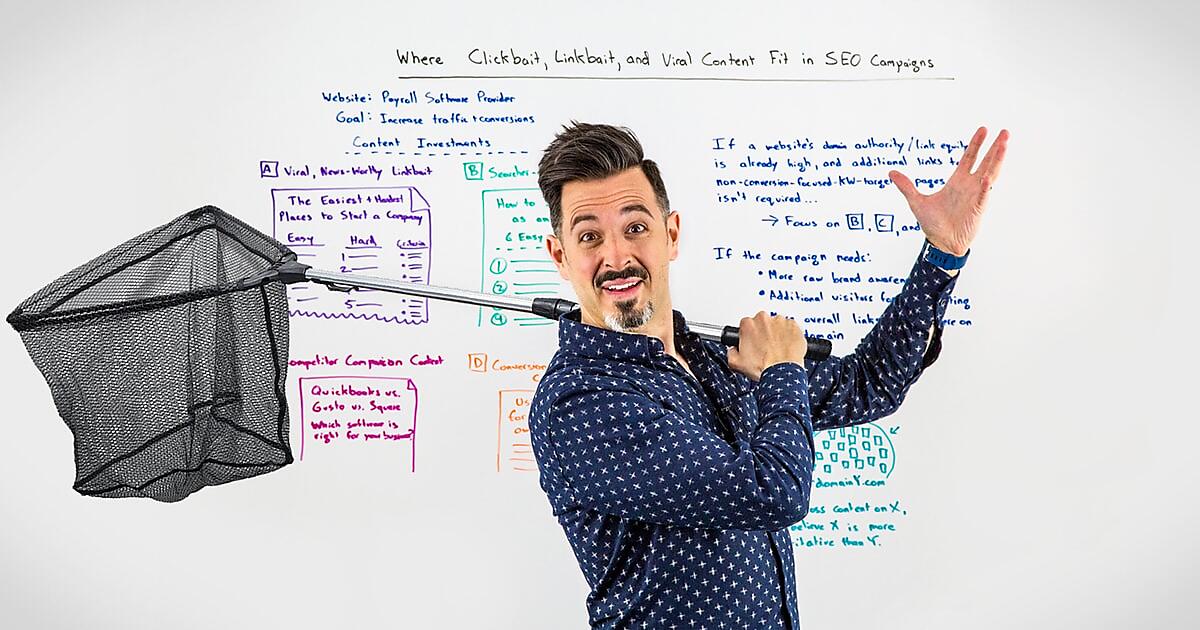 Where Clickbait, Linkbait, and Viral Content Fit in SEO Campaigns
Website: Payroll Software Provider
Goal: Increase traffic + conversions
Content Investments
A Viral, News-Worthy Linkbait
The Easiest + Hardest
Places to Start a Company
Easy Hard Criteria
1
2
5
B Searcher-
How to
as an
6 Easy
1
2
4
ompetitor Comparison Content
Quickbooks vs.
Gusto vs. Square
Which software is
right for your business?
D Conversion
Us
for
If a website's domain authority/link equity
is already high, and additional links to
non-conversion-focused-KW-target pages
isn't required...
→ Focus on B, C, and
If the campaign needs:
• More raw brand awaren
• Additional visitors fo ting
overall link ere on
domain
domainY.com
oss content on X,
elieve X is more
itative than Y.